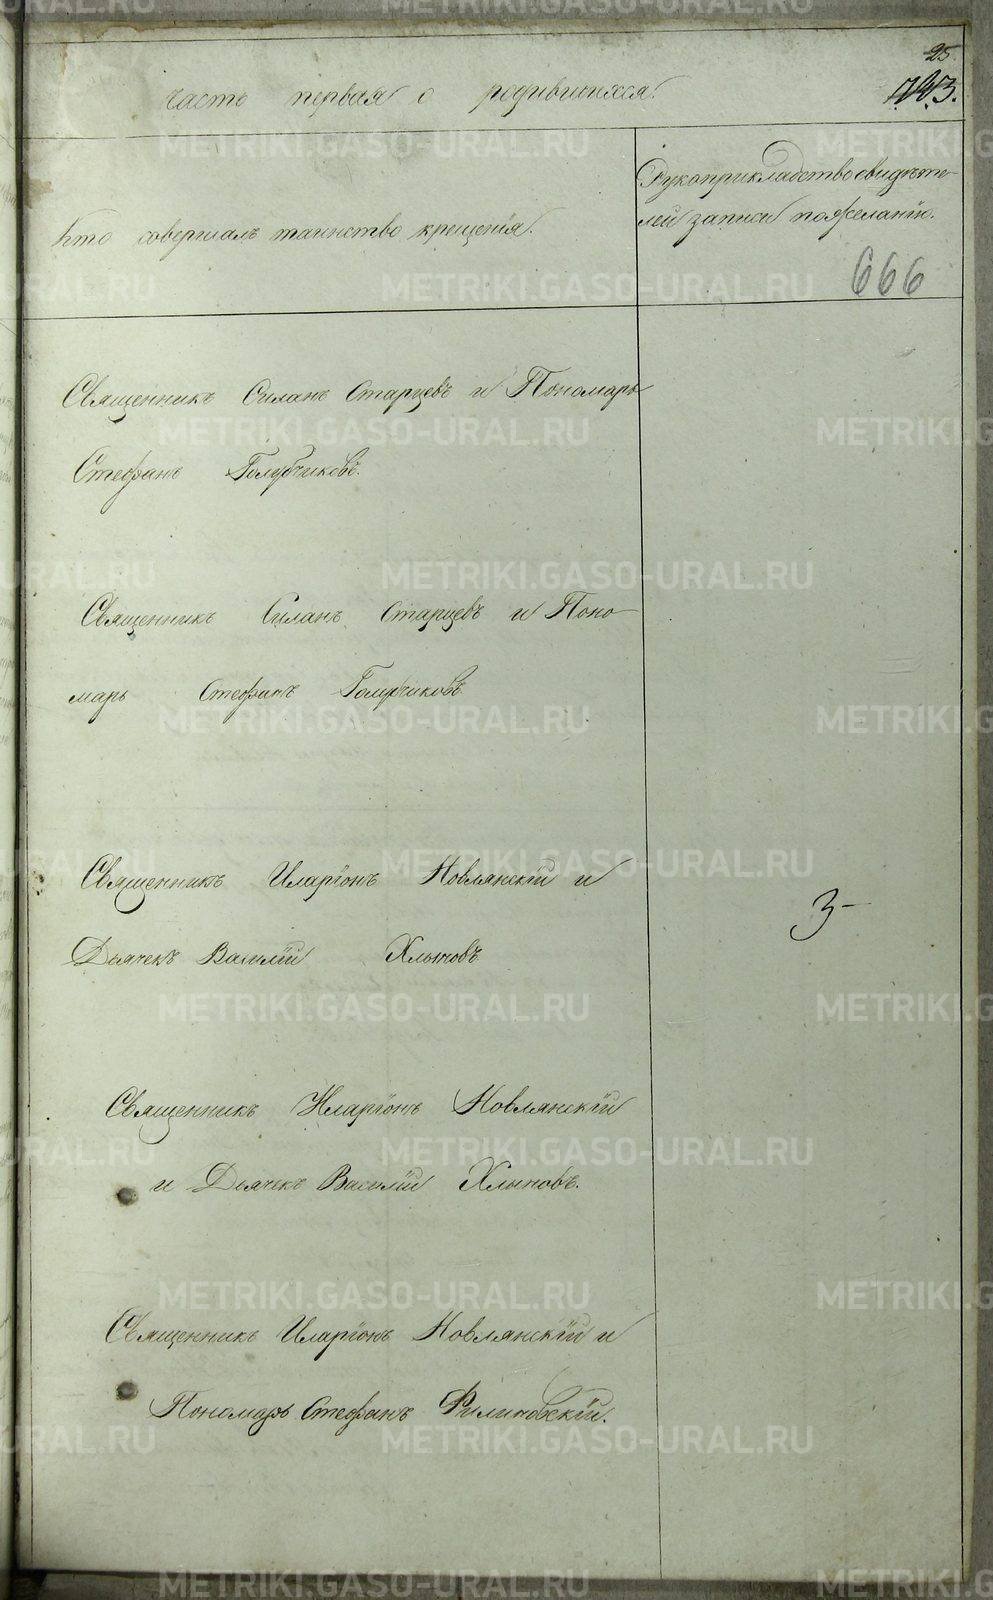 25.
Часть первая о родившихся.
Кто совершалъ таинство крещенія.
Рукоприкладство свидѣте-
лей записи по желанію.
666
Священникъ Силанъ Старцевъ и Пономарь
Стефанъ Голубчиковъ.
Священникъ Силанъ Старцевъ и Поно
марь Стефанъ Голубчиковъ
Священникъ Иларіонъ Новлянскій и
Дьячекъ Василій Хлыновъ
3-
Священникъ Иларіонъ Новлянскій
и Дьячекъ Василій Хлыновъ.
Священникъ Иларіонъ Новлянскій и
Пономарь Стефанъ Филиновскій.
METRIKI.GASO-URAL.RU